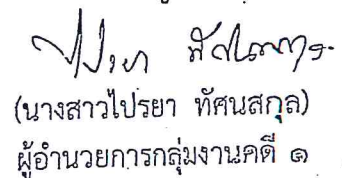 (นางสาวไปรยา ทัศนสกุล)
ผู้อำนวยการกลุ่มงานคดี ๑